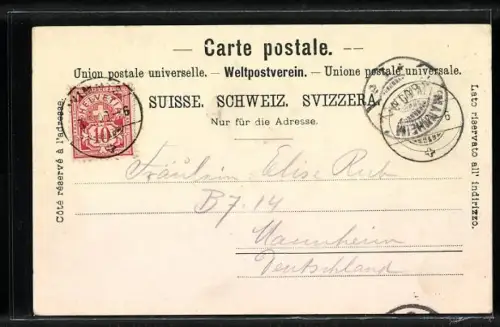 Carte postale.
Union postale universelle. — Weltpostverein. — Unione postale universale.
SUISSE. SCHWEIZ. SVIZZERA.
Nur für die Adresse.
Côté réservé à l'adresse.
Lato riservato all' indirizzo.
HELVETIA
10
MANNHEIM
Fräulein Elise Reub
B 7. 14
Mannheim
Deutschland